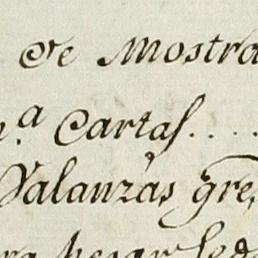 de Mostra
n.ª Cartas....
Valanzas gre
ra pesar Seda